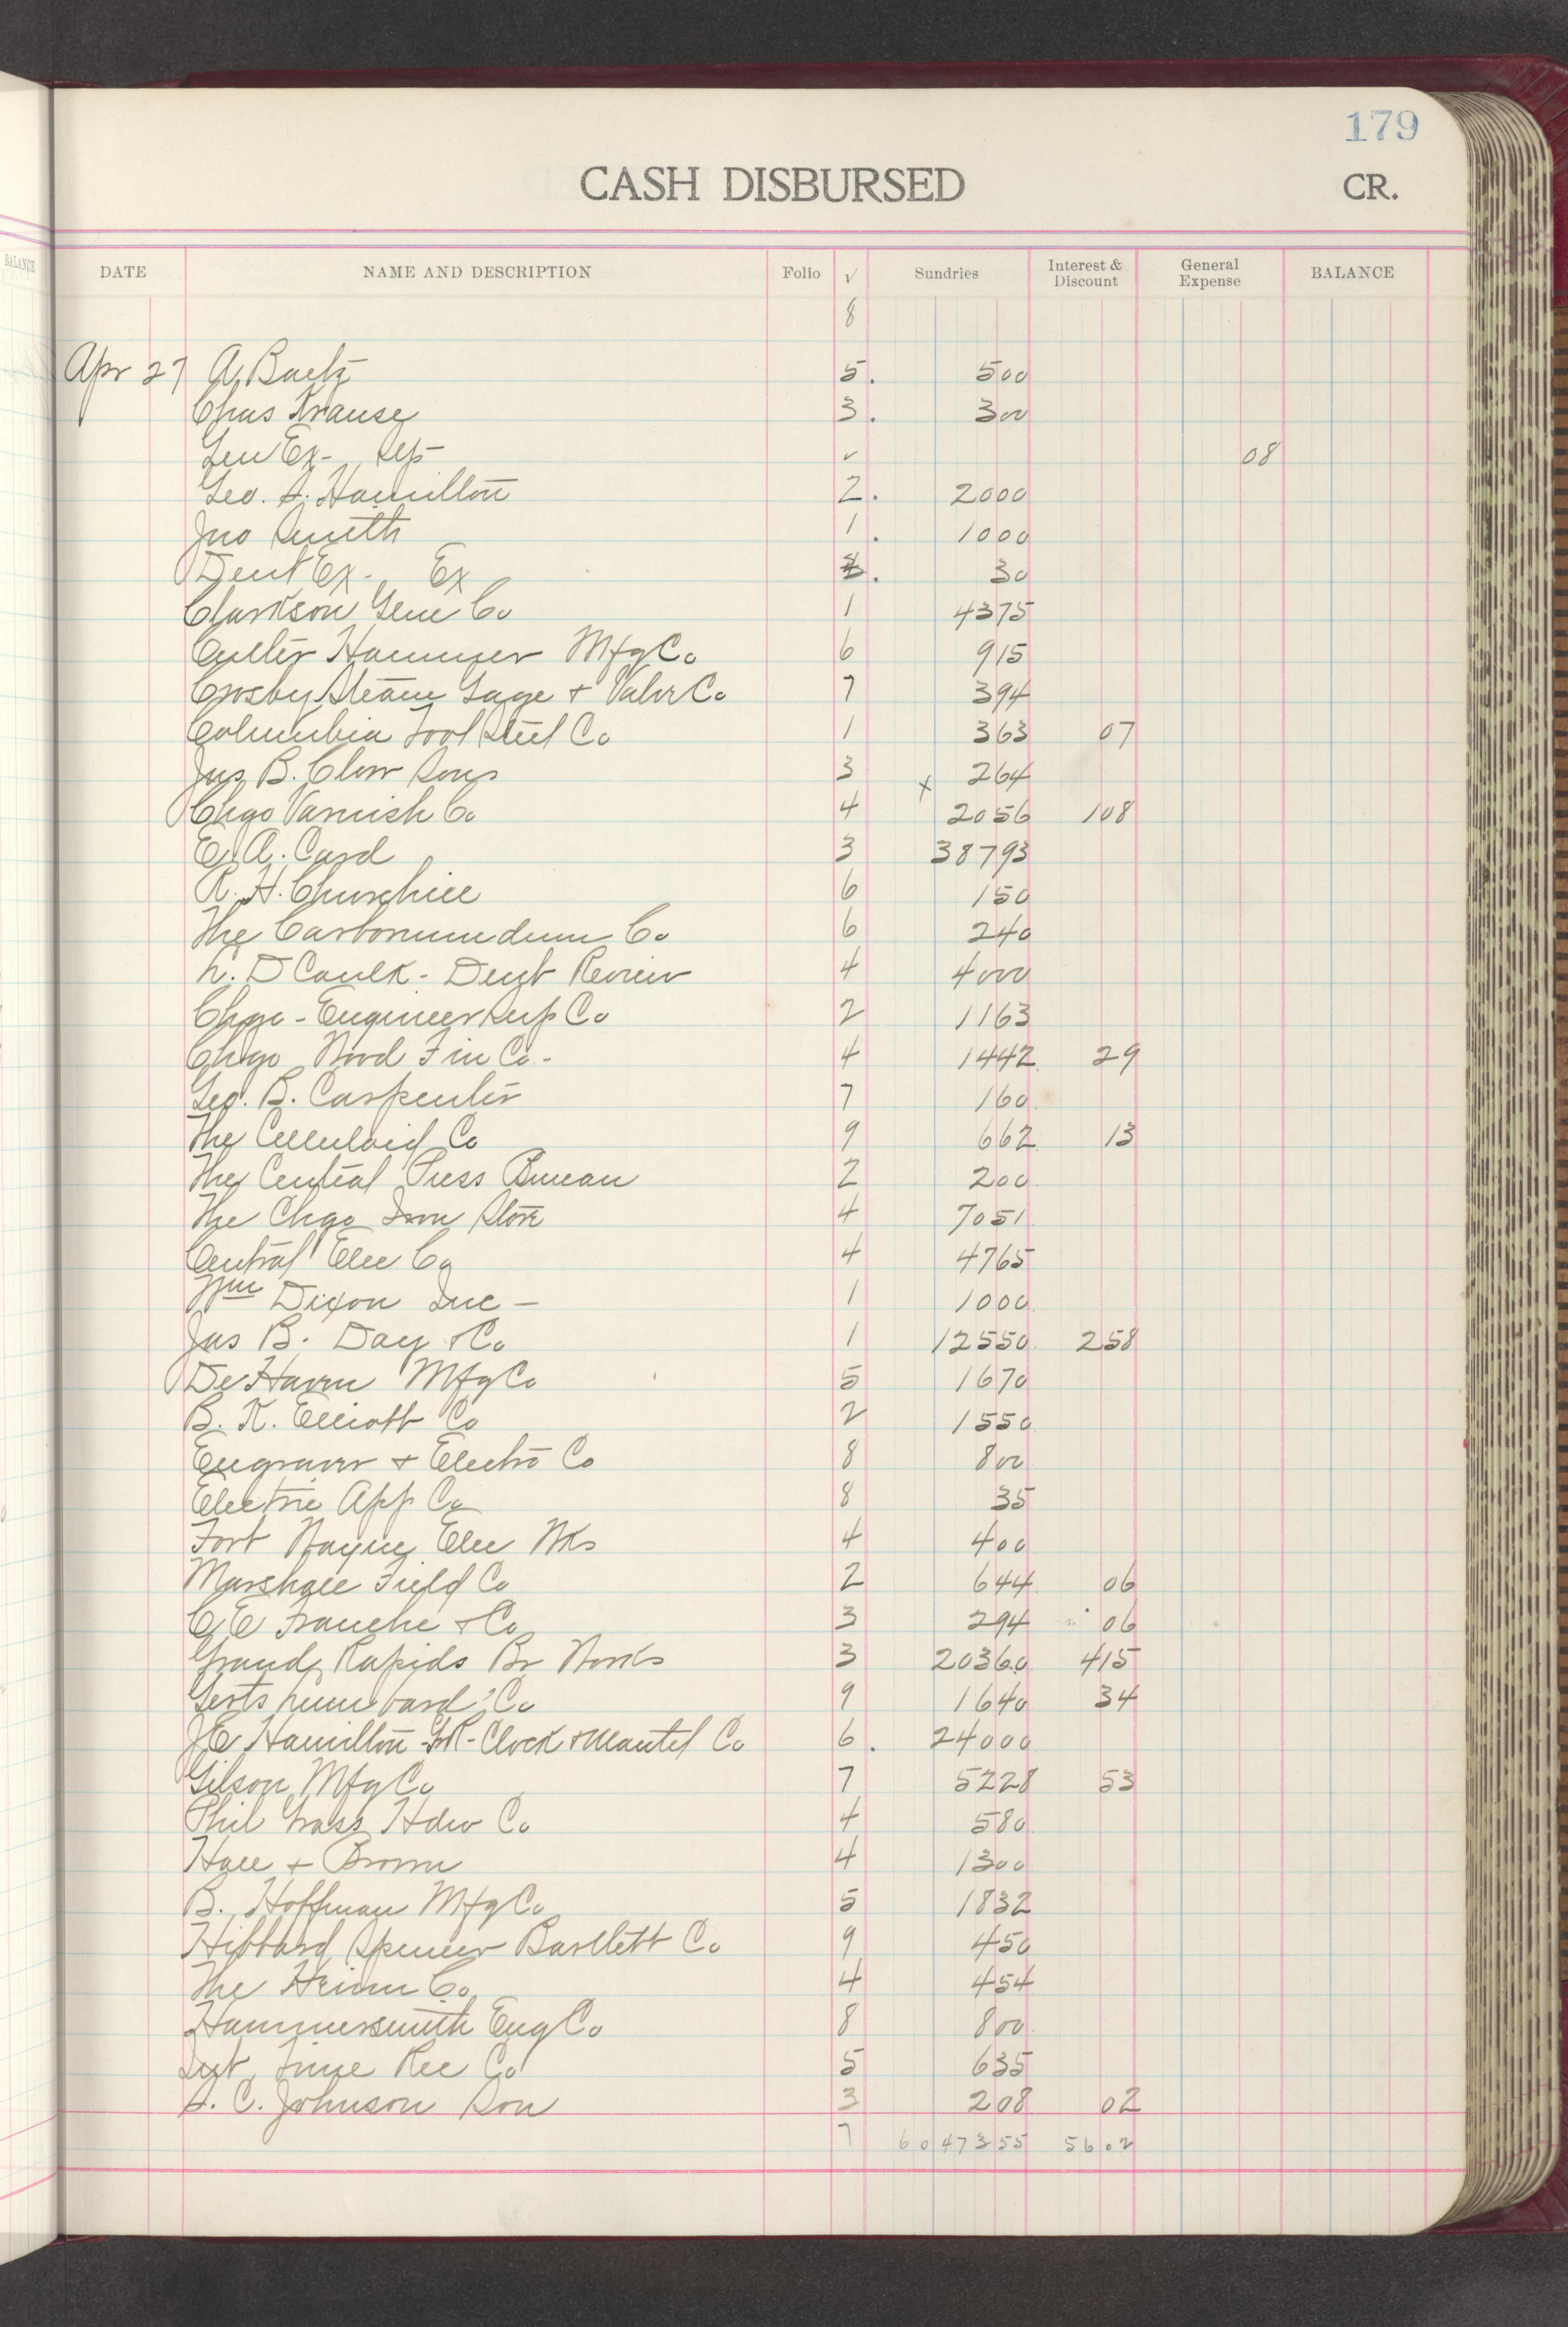 179
CASH DISBURSED CR.
BALANCE
DATE NAME AND DESCRIPTION Folio √ Sundries Interest & Discount General Expense BALANCE
8
Apr 27 A. Baetz 5. 500
Chas Krause 3. 300
Gen Ex- ✓ 08
Geo. S. Hamilton 2. 2000
Jno Smith 1. 1000
Dent Ex- Ex 30
Clarkson Co 1 4375
Cutler Hammer Mfg Co 6 915
Crosby Steam Gage + Valve Co 7 394
Columbia Tool Steel Co 1 363 07
Jas B. Clow Sons 3 264
x
Chgo Varnish Co 4 2056 108
E. A. Card 3 38793
R. H. Churchill 6 150
The Carborumdum Co 6 240
L. D Caulk - Dent Review 4 4000
Chgo - Engineer Sup Co 2 1163
Chgo Wood Fin Co - 4 1442 29
Geo. B. Carpenter 7 160
The Celluloid Co 9 662 13
The Central Press Bureau 2 200
The Chgo Iron Store 4 7051
Central Elec Co 4 4765
Wm Dixon Inc - 1 1000
Jas B. Day + Co 1 12550 258
De Haven Mfg Co 5 1670
B. K. Elliott Co 2 1550
Engraver + Electro Co 8 800
Electric App Co 8 35
Fort Wayne Elec Wks 4 400
Marshall Field Co 2 644 06
C E Franche + Co 3 294 06
Grand Rapids Br Works 3 20360 415
Gerts Lumbard Co 9 1640 34
J C Hamilton - G R - Clock + Mantel Co 6. 24000
Gilson Mfg Co 7 5228 53
Phil Gross Hdw Co 4 580
Hall + Brown 4 1300
B. Hoffman Mfg Co 5 1832
Hibbard Spencer Bartlett Co 9 450
The Heim Co 4 454
Hammersmith Eng Co 8 800
Int Time Rec Co 5 635
S. C. Johnson Son 3 208 02
7 6047355 5602